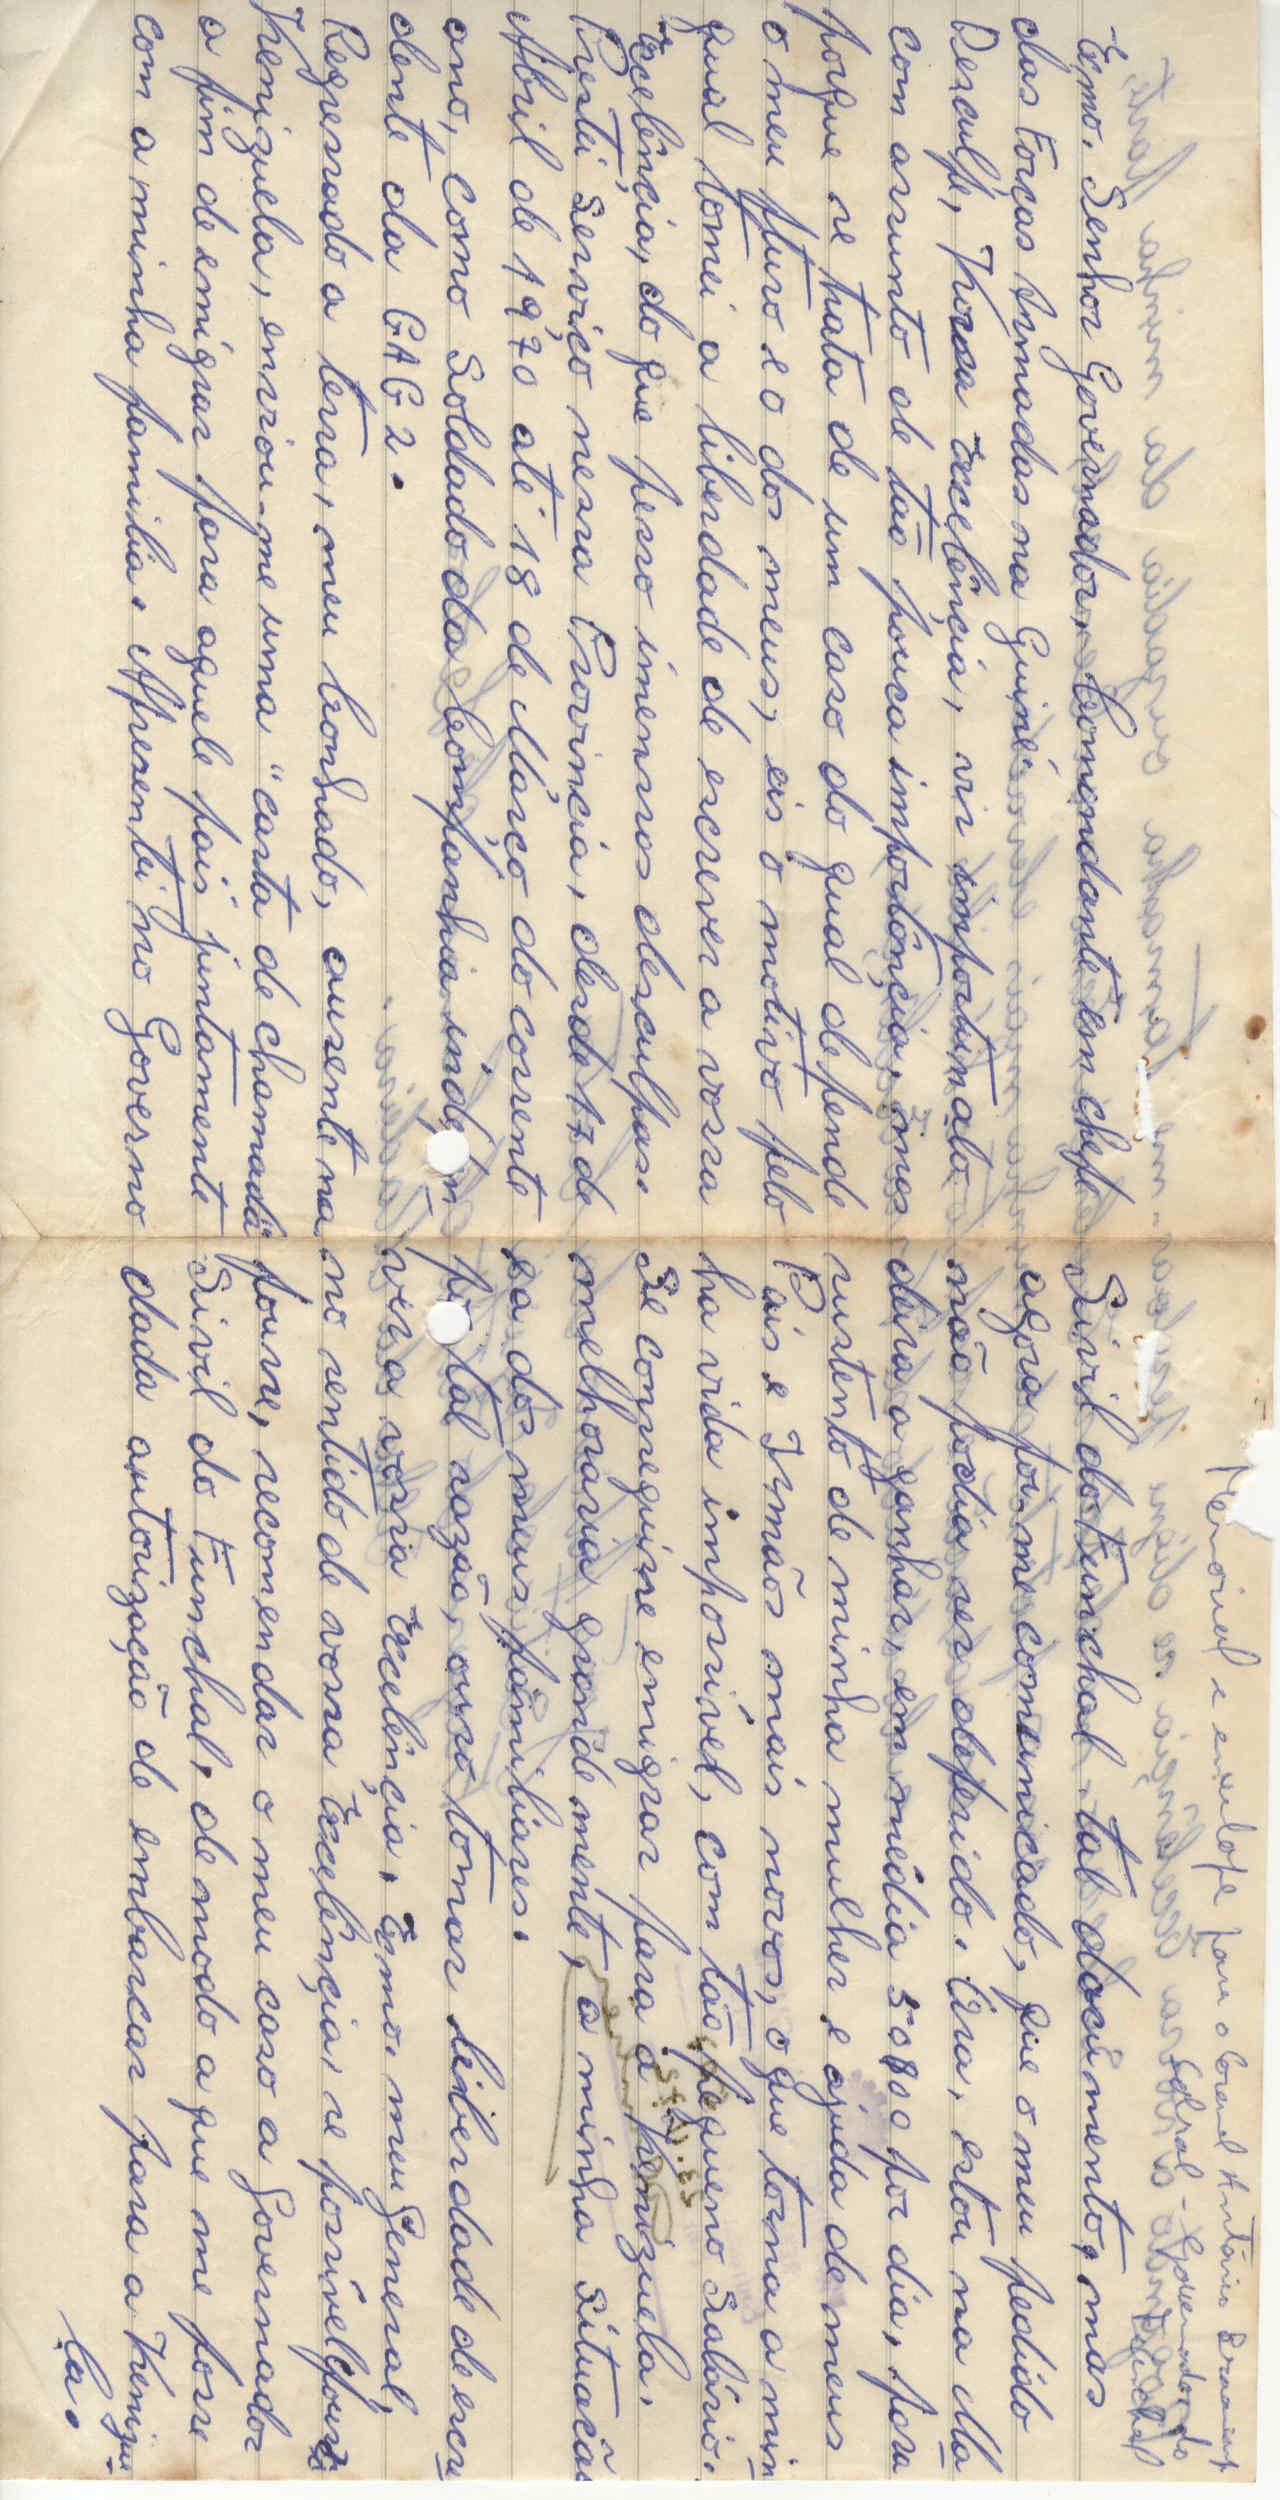 e envelope para o Coronel António Braamcamp
Sobral - Governador do
Funchal
Exmo. Senhor Governador, Comandante em chefe
das Forças Armadas na Guiné.
Desculpe, Vossa Excelência, vir importunalo
com assunto de tão pouca importância, mas
porque se trata de um caso do qual depende
o meu fturo e o dos meus, eis o motivo pelo
qual tomei a liberdade de escrever a vossa
Excelência, do que pesso imensos desculpas.
Prestei Serviço nessa Provincia, desde 17 de
Abril de 1970 até 18 de Março do corrente
ano, como Soldado da Companhia indepen
dente da CAC 2.
Regressado a terra, meu Cconhado, ausente na
Venizuela, enviou-me uma "carta de chamada"
a fim de emigrar para aquele país juntamente
com a minha familia. Apresentei no Governo
Sivil do Funchal tal documento, mas
agora foi-me comunicado, que o meu pedido
não podia ser deferido. Ora, estou na Ma
deira a ganhar, em média 50$00 por dia, para
sustento de minha mulher e ajuda de meus
Pais e Irmãos mais novos, o que torna a min
ha vida impossivel, com tão pequeno Salário.
Se conseguisse emigrar para a Venizuela,
melhoraria grandemente, a minha Situação
e a dos meus familiares.
Por tal razão, ouso tomar liberdade de escre
ver a vossa Excelência, Exmo. meu General,
no sentido de vossa Excelência, se possivel fouse
fousse, recomendar o meu caso a Governador
Sivil do Funchal, de modo a que me fosse
dada autorização de embarcar para a Venizue
la.